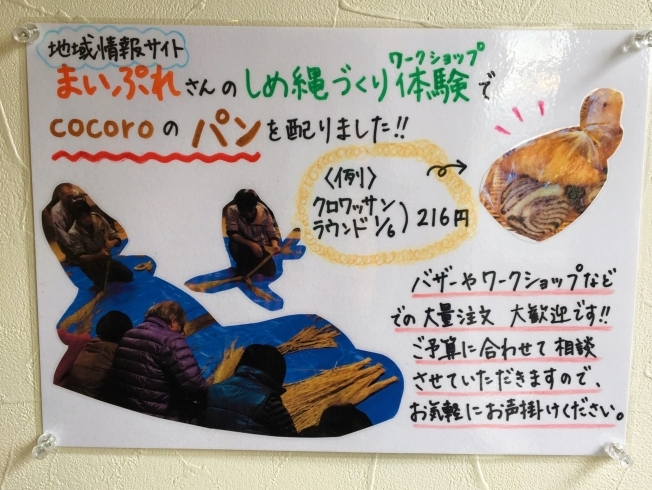 地域情報サイト
まいぷれさんのしめ縄づくり体験で
ワークショップ
cocoroのパンを配りました!!
〈例〉
クロワッサン
ラウンド 1/6) 216円
バザーやワークショップなど
での大量注文 大歓迎です!!
ご予算に合わせて相談
させていただきますので、
お気軽にお声掛けください。